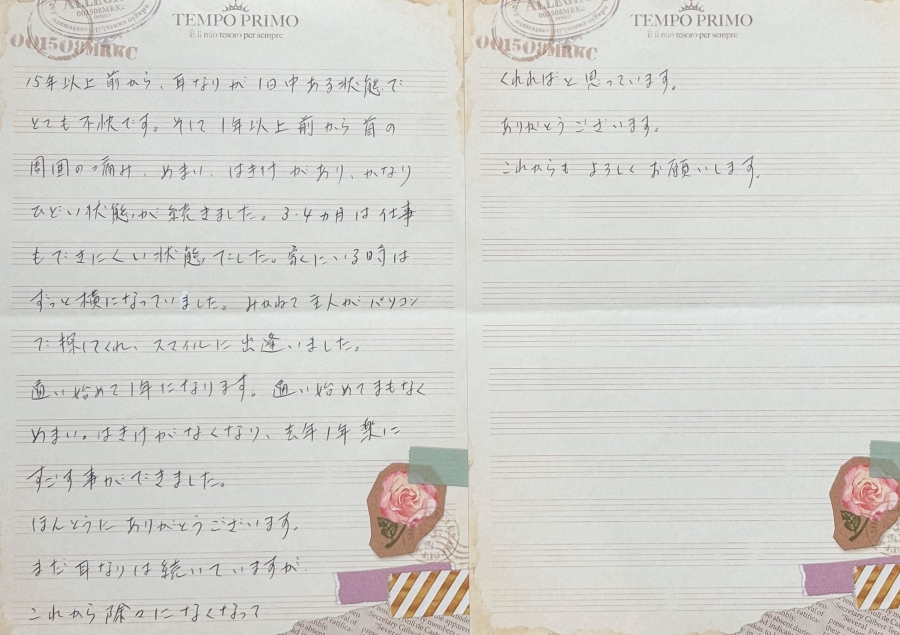 ALLEGRO
001508MRKC
001508MRKC
TEMPO PRIMO
E il mio tesoro per sempre
15年以上前から、耳なりが1日中ある状態で
とても不快です。そして1年以上前から首の
周囲の痛み、めまい、はきけがあり、かなり
ひどい状態が続きました。3・4ヵ月は仕事
もできにくい状態でした。家にいる時は
ずっと横になっていました。みかねて主人がパソコン
で探してくれ、スマイルに出逢いました。
通い始めて1年になります。通い始めてまもなく
めまい。はきけがなくなり、去年1年楽に
すごす事ができました。
ほんとうにありがとうございます。
まだ耳なりは続いていますが
これから除々になくなって
001508MRKC
001508MRKC
TEMPO PRIMO
E il mio tesoro per sempre
くれればと思っています。
ありがとうございます。
これからもよろしくお願いします。